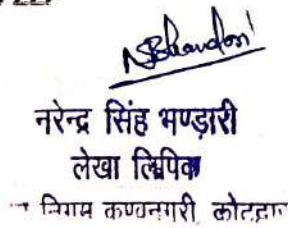 NBhandari
नरेन्द्र सिंह भण्डारी
लेखा लिपिक
निगम कण्वनगरी कोटद्वार